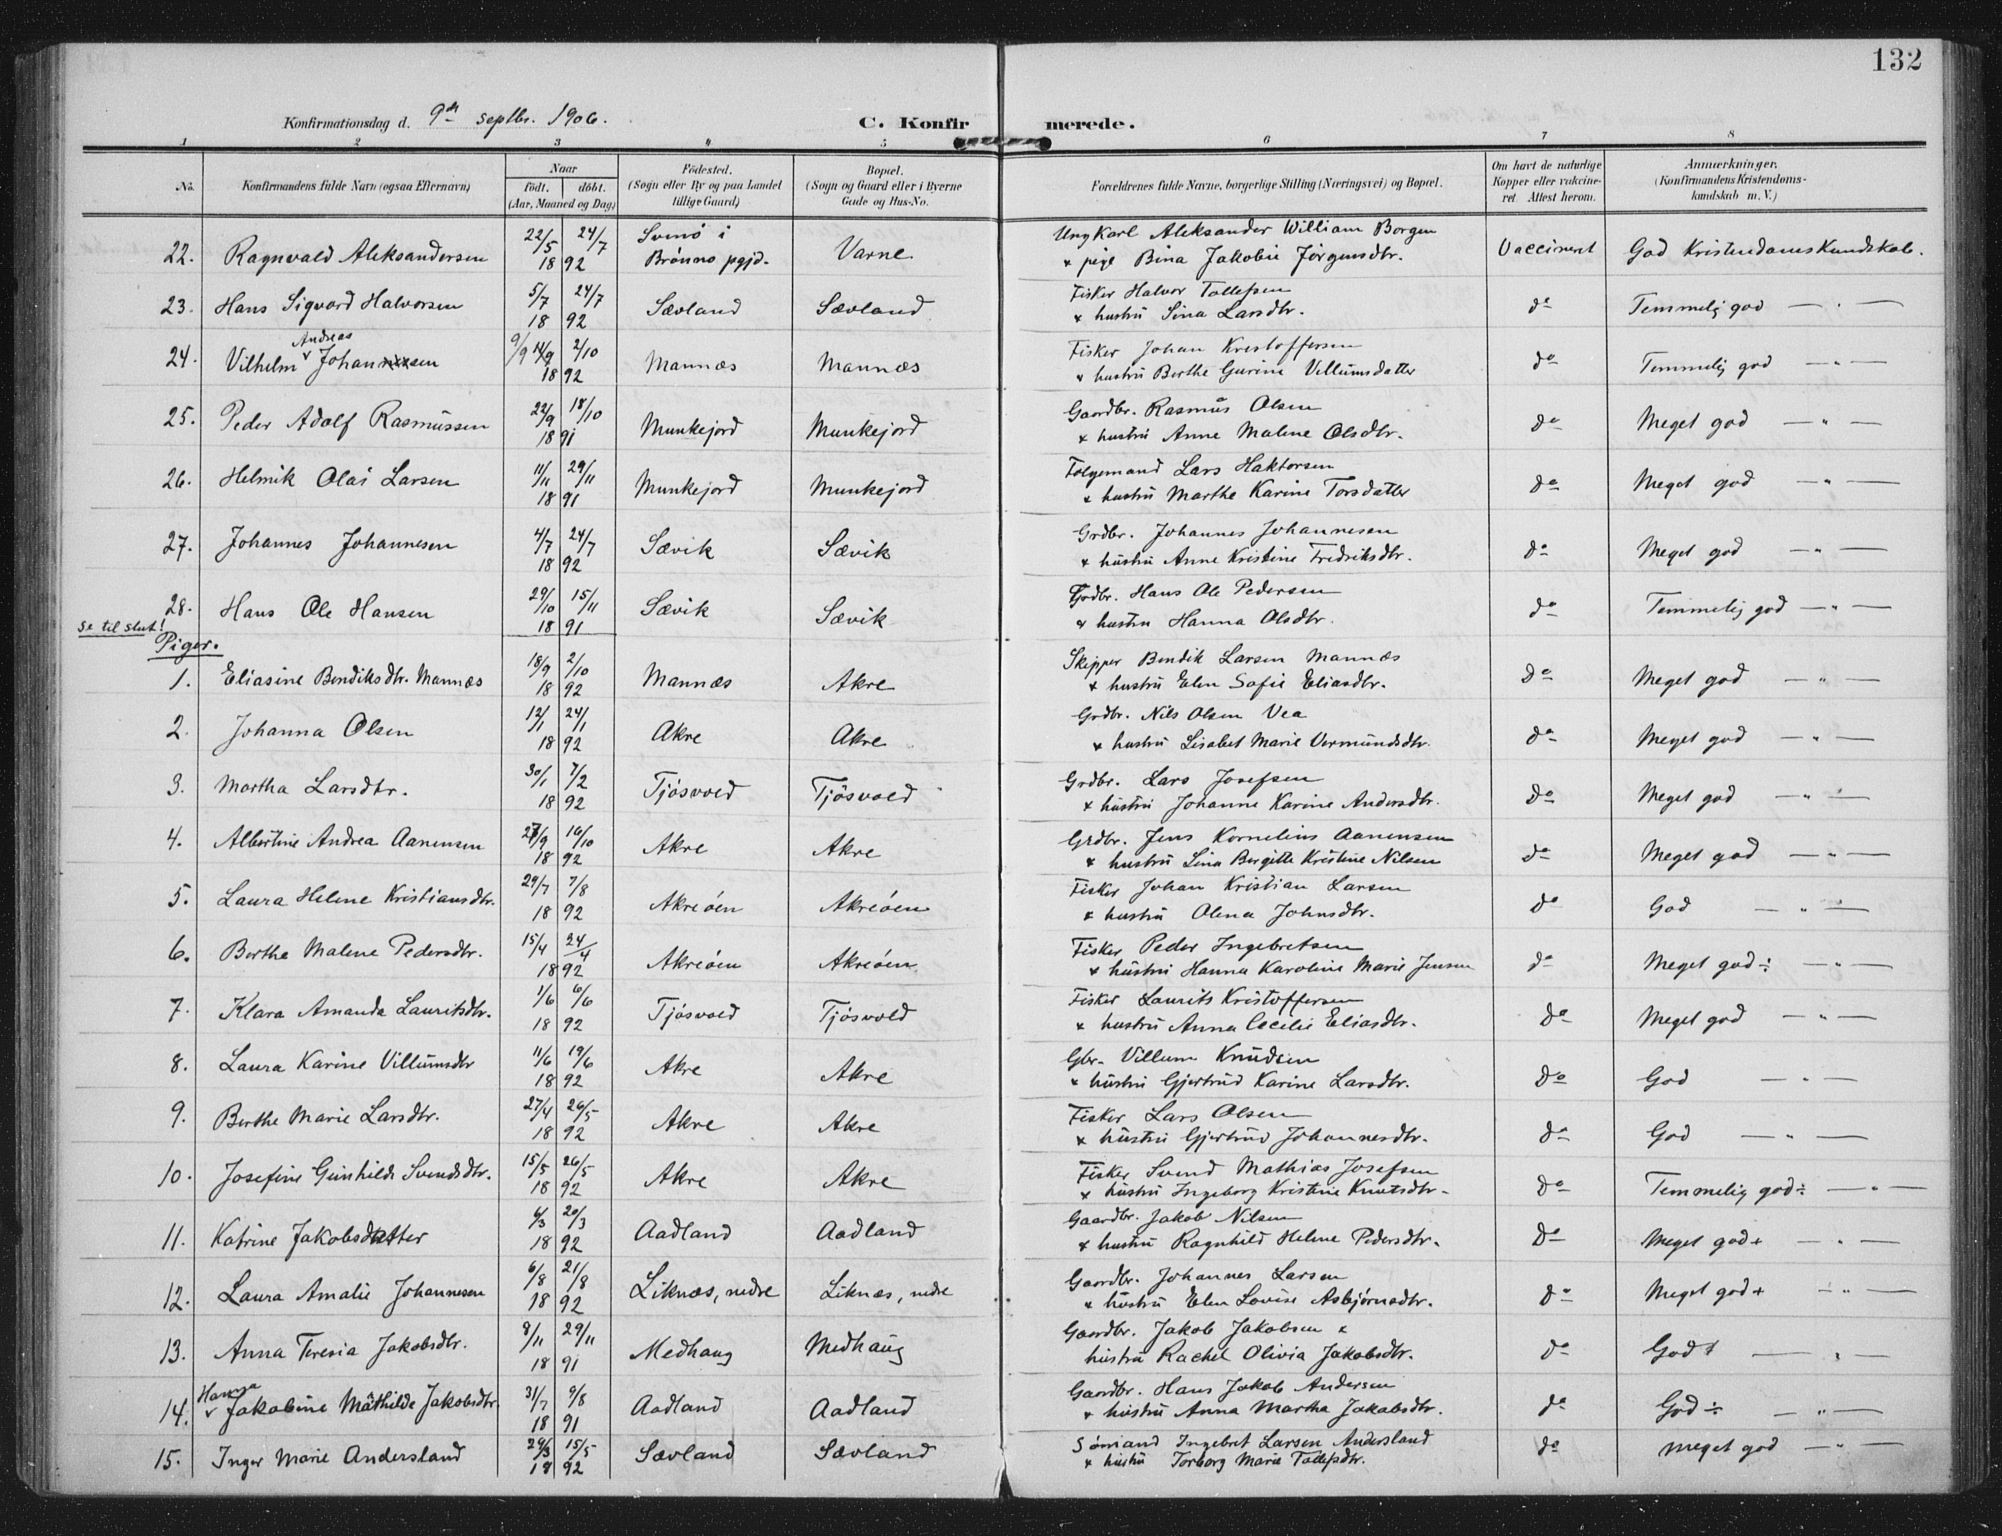 132
Konfirmationsdag d. 9de septbr. 1906.
C. Konfirmerede.
1 2 3 4 5 6 7 8
No. Konfirmandens fulde Navn (ogsaa Efternavn) Naar födt. döbt. (Aar, Maaned og Dag) Födested. (Sogn eller By og paa Landet tillige Gaard) Bopæl. (Sogn og Gaard eller i Byerne Gade og Hus-No. Forældrenes fulde Navne, borgerlige Stilling (Næringsvei) og Bopæl. Om havt de naturlige Kopper eller vaccineret. Attest herom. Anmærkninger. (Konfirmandens Kristendomskundskab m. V.)
22. Ragnvald Aleksandersen 22/5 24/7 1892 Svinö i Brönnö pgjd. Varne Ungkarl Aleksander William Borgen
+ pige Bina Jakobie Jörgensdtr. Vaccinert God Kristendomskundskab.
23. Hans Sigvard Halvorsen 5/7 24/7 1892 Sævland Sævland Fisker Halvor Tollefsen
+ hustru Sina Larsdtr. do Temmelig god — " —
24. Vilhelm Andreas Johannesen 9/9 2/10 1892 Mannæs Mannæs Fisker Johan Kristoffersen
+ hustru Berthe Gurine Villumsdatter do Temmelig god — " —
25. Peder Adolf Rasmussen 22/9 18/10 1891 Munkejord Munkejord Gaardbr. Rasmus Olsen
+ hustru Anne Malene Olsdtr. do Meget god — " —
26. Helmik Olai Larsen 11/11 29/11 1891 Munkejord Munkejord Folgemand Lars Haktorsen
+ hustru Marthe Karine Torsdatter do Meget god — " —
27. Johannes Johannesen 4/7 24/7 1892 Sævik Sævik Grdbr. Johannes Johannesen
+ hustru Anne Kristine Fredriksdtr. do Meget god — " —
28. Hans Ole Hansen 29/10 15/11 1891 Sævik Sævik Grdbr. Hans Ole Pedersen
+ hustru Hanna Olsdtr. do Temmelig god — " —
se til slut!
Piger.
1. Eliasine Bendiksdtr. Mannæs 18/9 2/10 1892 Mannæs Akre Skipper Bendik Larsen Mannæs
+ hustru Elen Sofie Eliasdtr. do Meget god — " —
2. Johanna Olsen 12/1 24/1 1892 Akre Akre Grdbr. Nils Olsen Vea
+ hustru Lisabet Marie Vermundsdtr. do Meget god — " —
3. Martha Larsdtr. 30/1 7/2 1892 Tjösvold Tjösvold Grdbr. Lars Josefsen
+ hustru Johanne Karine Andersdtr. do Meget god — " —
4. Albertine Andrea Aanensen 27/9 16/10 1892 Akre Akre Grdbr. Jens Kornelius Aanensen
+ hustru Lina Bergitte Kristine Nilsen do Meget god — " —
5. Laura Helene Kristiansdtr. 29/7 7/8 1892 Akreöen Akreöen Fisker Johan Kristian Larsen
+ hustru Olena Johnsdtr. do God — " —
6. Berthe Malene Pedersdtr. 15/4 24/4 1892 Akreöen Akreöen Fisker Peder Ingebretsen
+ hustru Hanna Karoline Marie Jensen do Meget god ÷ — " —
7. Klara Amanda Lauritsdtr. 1/6 6/6 1892 Tjösvold Tjösvold Fisker Laurits Kristoffersen
+ hustru Anna Cecilie Eliasdtr. do Meget god — " —
8. Laura Karine Villumsdtr 11/6 19/6 1892 Akre Akre Gbr. Villum Knudsen
+ hustru Gjertrud Karine Larsdtr. do God — " —
9. Berthe Marie Larsdtr. 27/4 26/5 1892 Akre Akre Fisker Lars Olsen
+ hustru Gjertrud Johannesdtr. do God — " —
10. Josefine Gunhilde Svendsdtr. 15/5 26/5 1892 Akre Akre Fisker Svend Mathias Josefsen
+ hustru Ingeborg Kristine Knutsdtr. do Temmelig god ÷ — " —
11. Katrine Jakobsdatter 6/3 20/3 1892 Aadland Aadland Gaardbr. Jakob Nilsen
+ hustru Ragnhild Helene Pedersdtr. do Meget god + — " —
12. Laura Amalie Johannesen 6/8 21/8 1892 Liknæs, nedre Liknæs, nedre Gaardbr. Johannes Larsen
+ hustru Elen Lovise Asbjörnsdtr. do Meget god + — " —
13. Anna Teresia Jakobsdtr. 8/11 29/11 1891 Medhaug Medhaug Gaardbr. Jakob Jakobsen +
hustru Rachel Olivia Jakobsdtr. do God + — " —
14. Hanna Jakobine Mathilde Jakobsdtr. 31/7 9/8 1891 Aadland Aadland Gaardbr. Hans Jakob Andersen
+ hustru Anna Martha Jakobsdtr. do God ÷ — " —
15. Inger Marie Andersland 29/3 15/5 1892 Sævland Sævland Sömand Ingebret Larsen Andersland
+ hustru Torborg Marie Tollefsdtr. do Meget god — " —